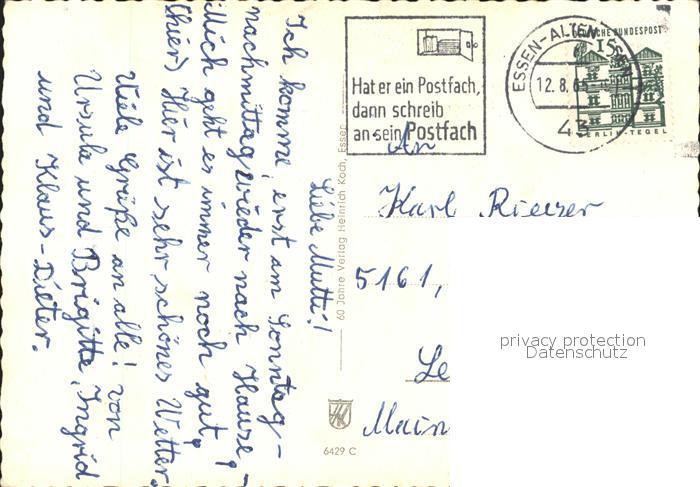 Liebe Mutti!
Ich komme erst am Sonntag-
nachmittag wieder nach Hause.
Mich geht es immer noch gut.
(hier) Hier ist sehr schönes Wetter.
Viele Grüße an alle! von
Ursula und Brigitte, Ingrid
und Klaus-Dieter.
60 Jahre Verlag Heinrich Koch, Essen
6429 C
Hat er ein Postfach,
dann schreib
an sein Postfach
ESSEN-ALTENESSEN
12.8.65
43
DEUTSCHE BUNDESPOST
15
BERLIN-TEGEL
An
Karl
5161,
Le
Main
privacy protection
Datenschutz